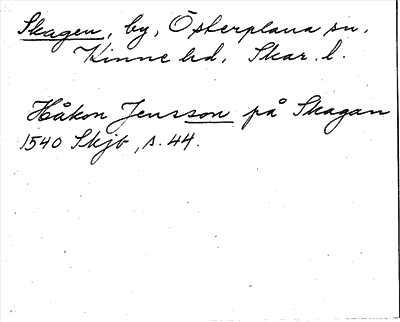 Skagen, by, Österplana sn,
Kinne hd, Skar. l.
Håkon Jensson på Skagan
1540 Skjb, s. 44.